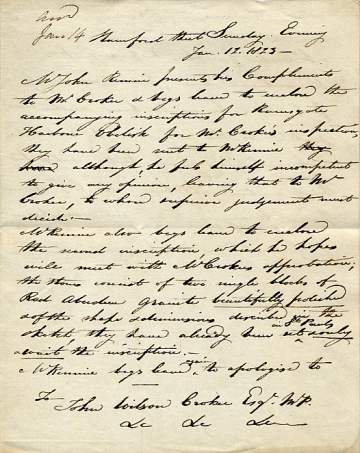 Jany 14
Stamford Street Sunday Evening
Jan. 12. 1823 —
Mr John Rennie presents his Compliments
to Mr Croker & begs leave to enclose the
accompanying inscriptions for Ramsgate
Harbour Obelisk for Mr Crokers inspection,
they have been sent to Mr Rennie
although, he feels himself incompetent
to give any opinion, leaving that to Mr
Croker, to whose superior judgement must
decide. —
Mr Rennie also begs leave to enclose
the second inscription, which he hopes
will meet with Mr Crokers approbation;
the stones consist of two single blocks of
Red Aberdeen Granite beautifully polished
& of the shape & dimensions described in the
sketch they have already been
await the inscription. —
Mr Rennie begs leave to apologise to
To John Wilson Croker Esqr. M.P.
&c &c &c